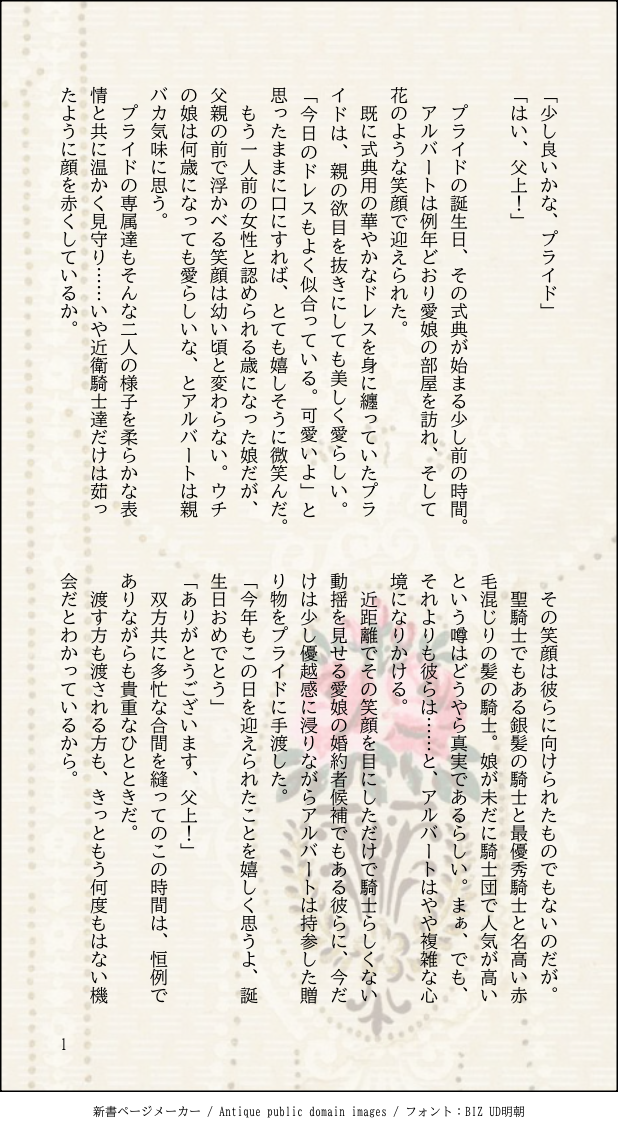 「少し良いかな、プライド」
「はい、父上！」
プライドの誕生日、その式典が始まる少し前の時間。
アルバートは例年どおり愛娘の部屋を訪れ、そして
花のような笑顔で迎えられた。
既に式典用の華やかなドレスを身に纏っていたプラ
イドは、親の欲目を抜きにしても美しく愛らしい。
「今日のドレスもよく似合っている。可愛いよ」と
思ったままに口にすれば、とても嬉しそうに微笑んだ。
もう一人前の女性と認められる歳になった娘だが、
父親の前で浮かべる笑顔は幼い頃と変わらない。ウチ
の娘は何歳になっても愛らしいな、とアルバートは親
バカ気味に思う。
プライドの専属達もそんな二人の様子を柔らかな表
情と共に温かく見守り……いや近衛騎士達だけは茹っ
たように顔を赤くしているか。
その笑顔は彼らに向けられたものでもないのだが。
聖騎士でもある銀髪の騎士と最優秀騎士と名高い赤
毛混じりの髪の騎士。娘が未だに騎士団で人気が高い
という噂はどうやら真実であるらしい。まぁ、でも、
それよりも彼らは……と、アルバートはやや複雑な心
境になりかける。
近距離でその笑顔を目にしただけで騎士らしくない
動揺を見せる愛娘の婚約者候補でもある彼らに、今だ
けは少し優越感に浸りながらアルバートは持参した贈
り物をプライドに手渡した。
「今年もこの日を迎えられたことを嬉しく思うよ、誕
生日おめでとう」
「ありがとうございます、父上！」
双方共に多忙な合間を縫ってのこの時間は、恒例で
ありながらも貴重なひとときだ。
渡す方も渡される方も、きっともう何度もはない機
会だとわかっているから。
1
新書ページメーカー / Antique public domain images / フォント：BIZ UD明朝